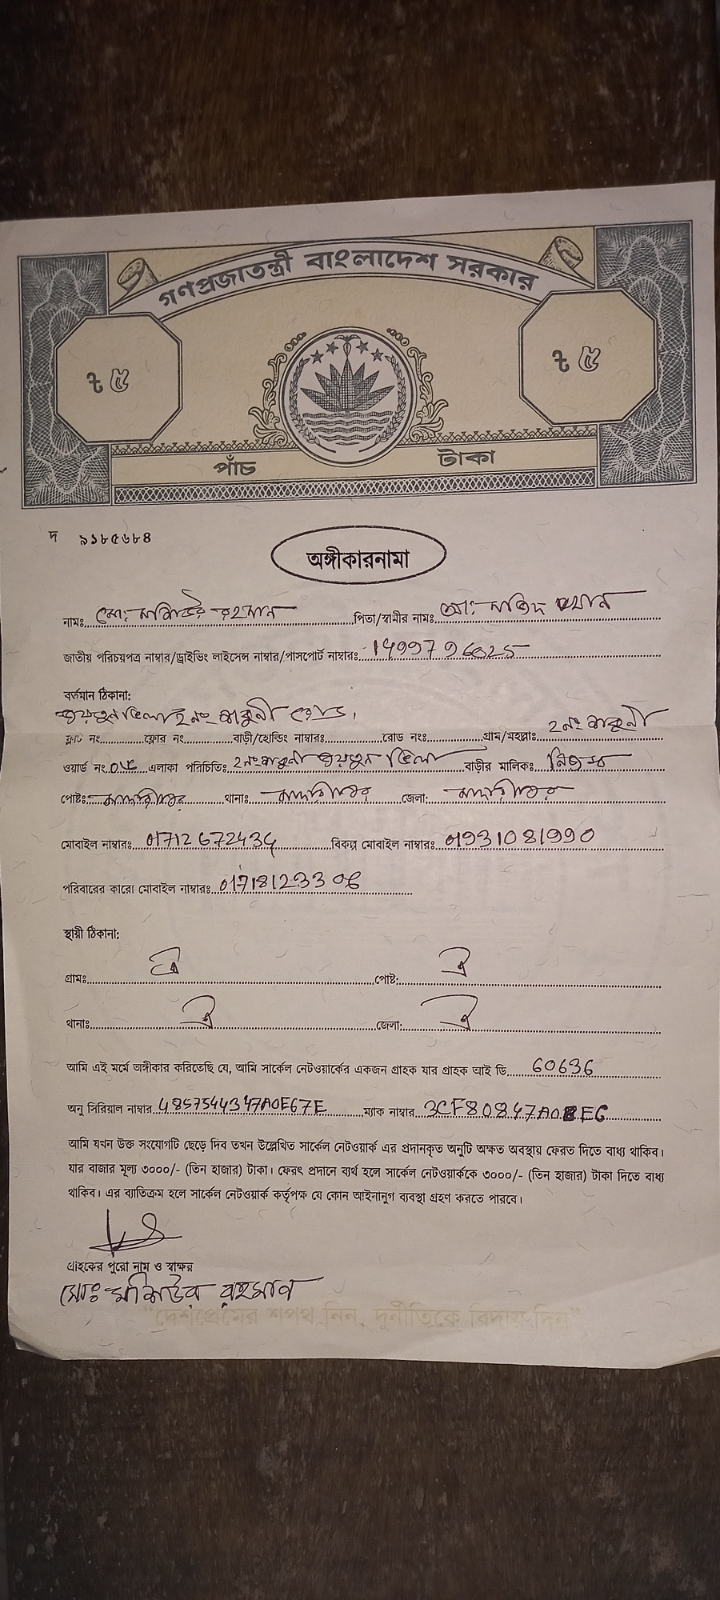 গণপ্রজাতন্ত্রী বাংলাদেশ সরকার
৳ ৫
৳ ৫
পাঁচ টাকা
দ ৯১৮৫৬৮৪
অঙ্গীকারনামা
নামঃ মোঃ রহমান পিতা/স্বামীর নামঃ
জাতীয় পরিচয়পত্র নাম্বার/ড্রাইভিং লাইসেন্স নাম্বার/পাসপোর্ট নাম্বারঃ 1499796025
বর্তমান ঠিকানা:
ফ্লাট নং ফ্লোর নং বাড়ী/হোল্ডিং নাম্বারঃ রোড নংঃ গ্রাম/মহল্লাঃ ২নং
ওয়ার্ড নং এলাকা পরিচিতিঃ ২নং বাড়ীর মালিকঃ নিজস্ব
পোষ্টঃ থানাঃ জেলা:
মোবাইল নাম্বারঃ বিকল্প মোবাইল নাম্বারঃ 01931081990
পরিবারের কারো মোবাইল নাম্বারঃ
স্থায়ী ঠিকানা:
গ্রামঃ ঐ পোষ্ট: ঐ
থানাঃ ঐ জেলা: ঐ
আমি এই মর্মে অঙ্গীকার করিতেছি যে, আমি সার্কেল নেটওয়ার্কের একজন গ্রাহক যার গ্রাহক আই ডি 60636
অনু সিরিয়াল নাম্বার 4857544347A0E67E ম্যাক নাম্বার
আমি যখন উক্ত সংযোগটি ছেড়ে দিব তখন উল্লেখিত সার্কেল নেটওয়ার্ক এর প্রদানকৃত অনুটি অক্ষত অবস্থায় ফেরত দিতে বাধ্য থাকিব।
যার বাজার মূল্য ৩০০০/- (তিন হাজার) টাকা। ফেরৎ প্রদানে ব্যর্থ হলে সার্কেল নেটওয়ার্ককে ৩০০০/- (তিন হাজার) টাকা দিতে বাধ্য
থাকিব। এর ব্যতিক্রম হলে সার্কেল নেটওয়ার্ক কর্তৃপক্ষ যে কোন আইনানুগ ব্যবস্থা গ্রহণ করতে পারবে।
গ্রাহকের পুরো নাম ও স্বাক্ষর
মোঃ রহমান
"দেশপ্রেমের শপথ নিন, দুর্নীতিকে বিদায় দিন"